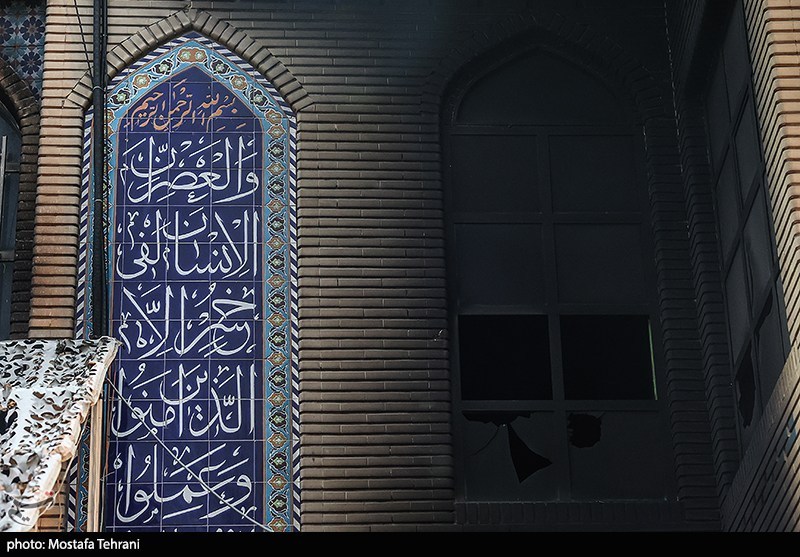 بسم الله الرحمن الرحیم
والعصر إن
الإنسان لفی
خسر إلا
الذین آمنوا
وعملوا
photo: Mostafa Tehrani